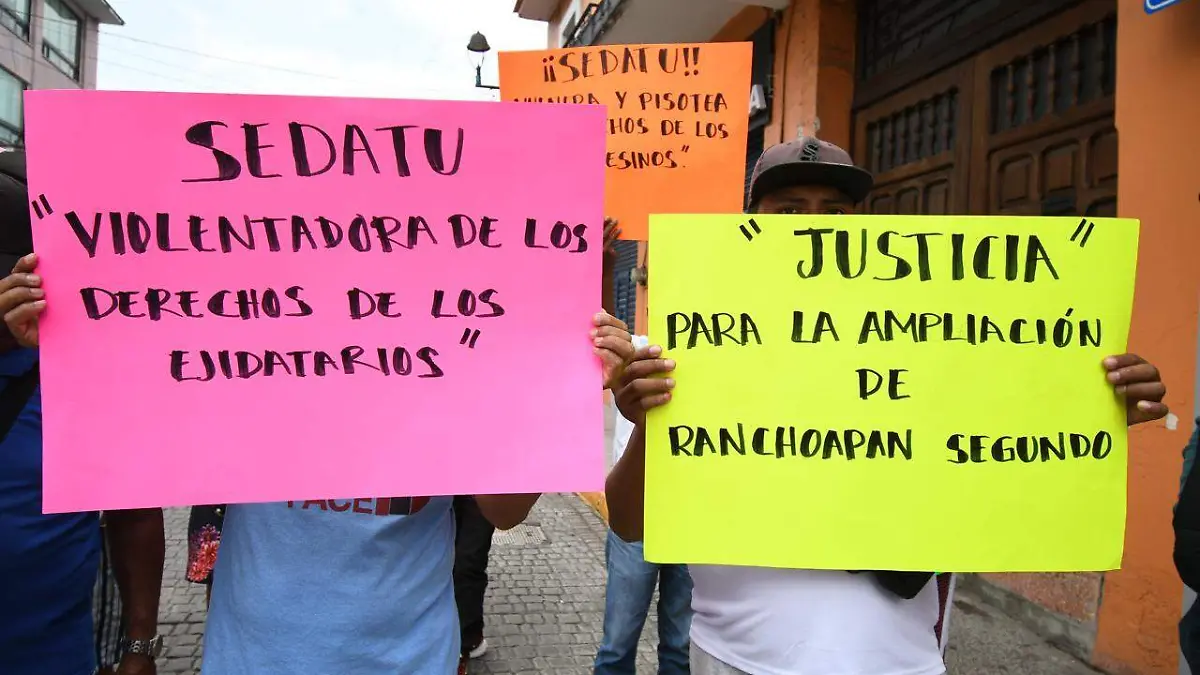 SEDATU
"VIOLENTADORA DE LOS
DERECHOS DE LOS
EJIDATARIOS"
¡¡SEDATU!!
Y PISOTEA
DE LOS
"JUSTICIA"
PARA LA AMPLIACIÓN
DE
RANCHOAPAN SEGUNDO